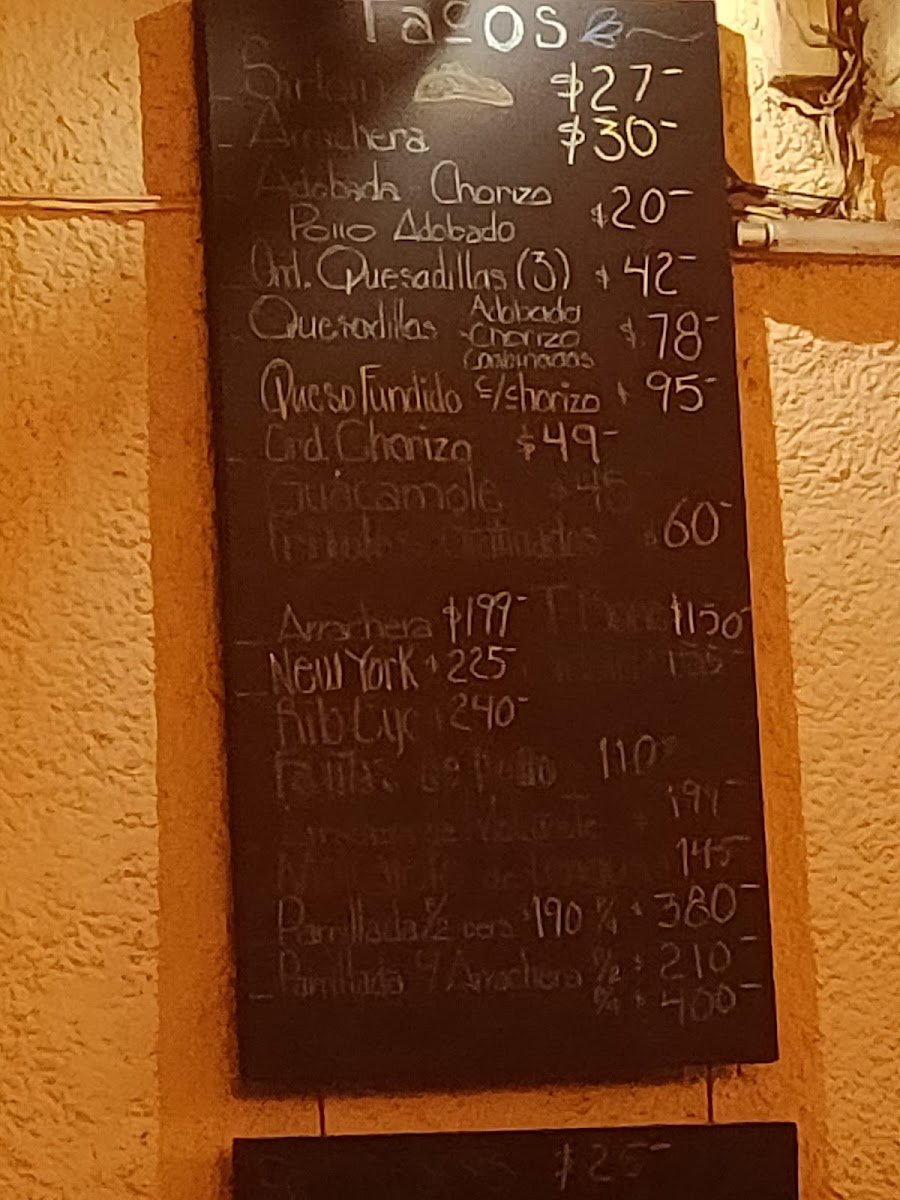 Tacos
$27-
Arrachera $30-
Adobada Chorizo
Pollo Adobado $20-
Ord. Quesadillas (3) $42-
Quesadillas Adobada
-Chorizo $78-
Combinadas
Queso Fundido c/chorizo $95-
Ord. Chorizo $49-
Guacamole $45
$60-
Arrachera $199- T Bone $150-
New York $225-
Rib Eye 240-
Fajitas de Pollo 110-
145
Parrillada P/2 pers $190 P/4 $380-
Parrillada c/ Arrachera P/2 $210-
P/4 $400-
$25-